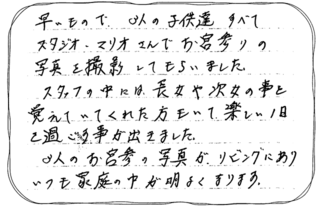 早いもので、3人の子供達 すべて
スタジオ・マリオさんでお宮参りの
写真を撮影してもらいました。
スタッフの中には、長女や次女の事を
覚えていてくれた方もいて楽しい1日
を過ごす事が出来ました。
3人のお宮参の写真が、リビングにあり
いつも家庭の中が明るくなります。